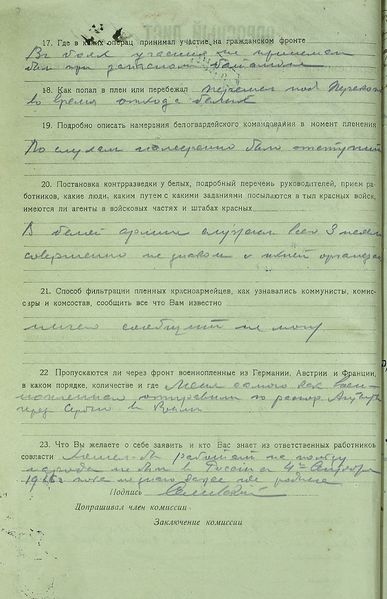 17. Где в каких операц принимал участие на гражданском фронте
В боях участия не принимал
был при запасном батальоне
18. Как попал в плен или перебежал перешел под Перекоп
во время отхода белых
19. Подробно описать намерения белогвардейского командования в момент пленения
По слухам намерение было отступить
20. Постановка контрразведки у белых, подробный перечень руководителей, прием ра-
ботников, какие люди, каким путем с какими заданиями посылаются в тыл красных войск,
имеются ли агенты в войсковых частях и штабах красных
В белой армии служил всего 3 недели
совершенно не знаком с ихней организац
21. Способ фильтрации пленных красноармейцев, как узнавались коммунисты, комис-
сары и комсостав, сообщить все что Вам известно
ничего сообщить не могу
22 Пропускаются ли через фронт военнопленные из Германии, Австрии и Франции,
в каком порядке, количестве и где Меня самого как воен-
нопленного отправили по
через Сербию в
23. Что Вы желаете о себе заявить и кто Вас знает из ответственных работников
совласти работать на пользу
народа не был в России с 4го
Подпись
Допрашивал член комиссии
Заключение комиссии